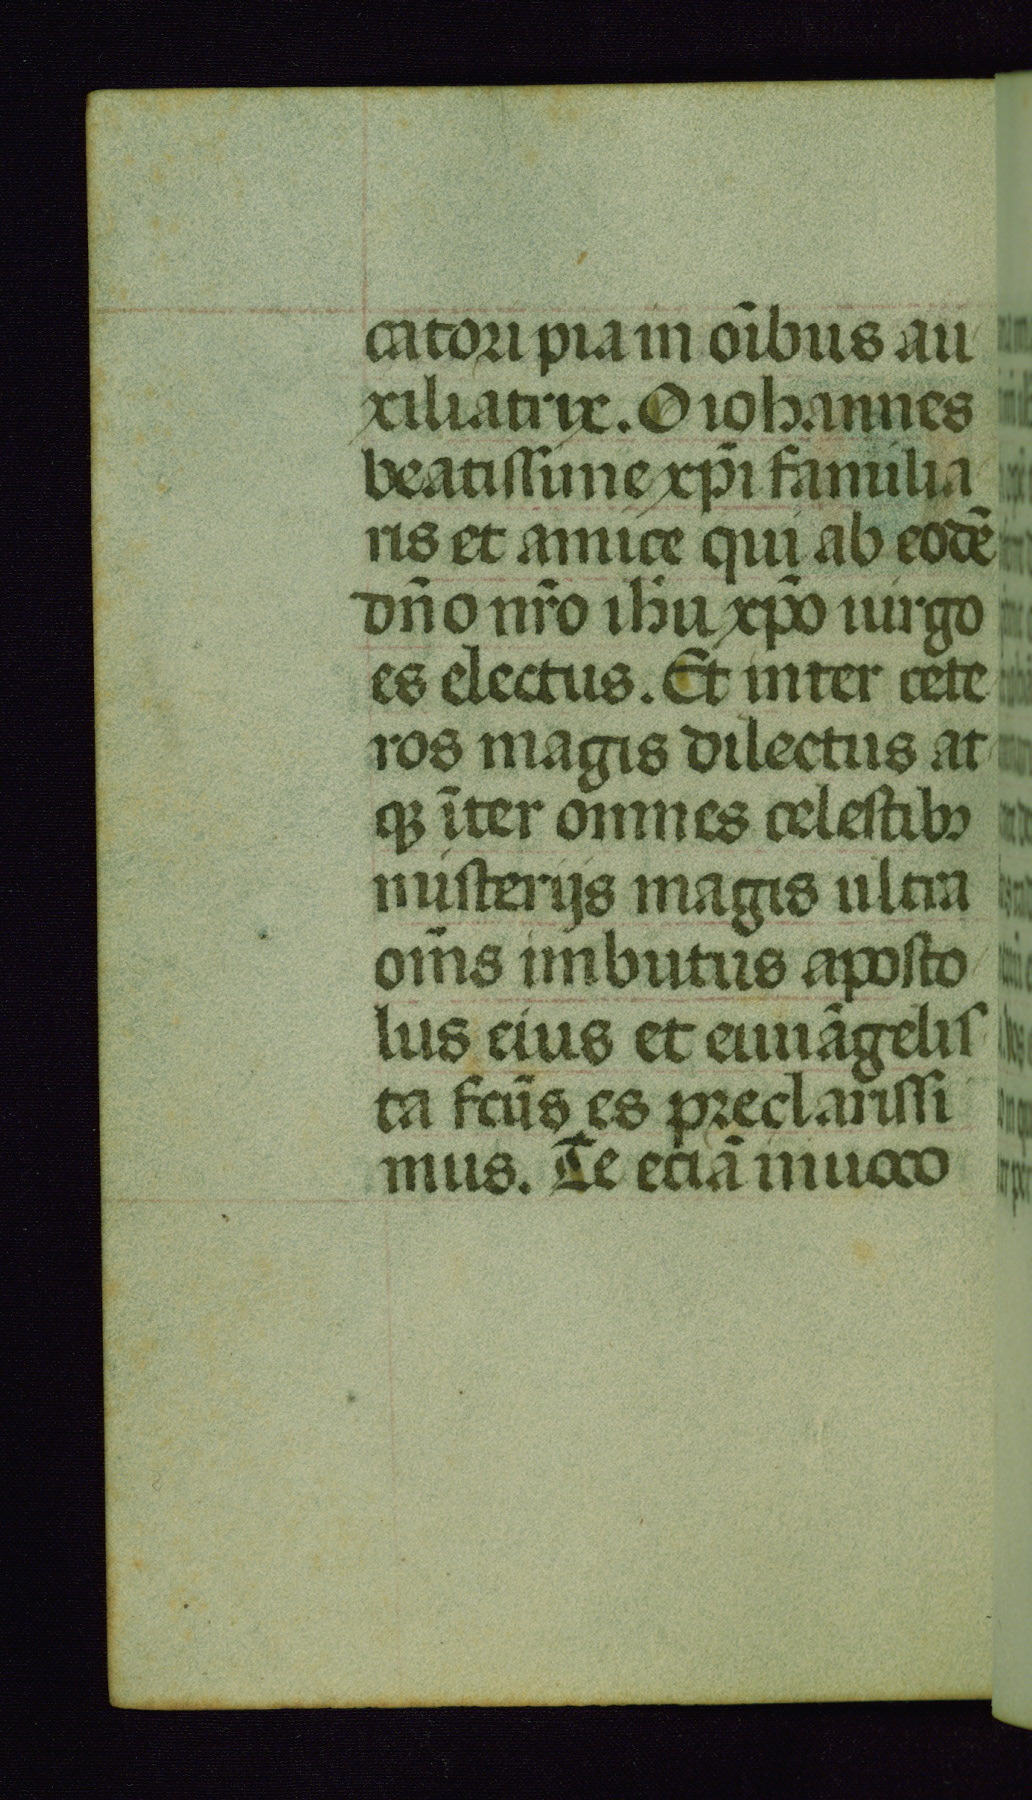 catori pia in oĩbus au
xiliatrix. O iohannes
beatissime xp̃i familia
ris et amice qui ab eodẽ
dñ̃o nr̃o ihũ xp̃o uirgo
es electus. Et inter cete
ros magis dilectus at
qꝫ ĩter omnes celestibꝫ
misterijs magis ultra
om̃s imbutus aposto
lus eius et euuãgelis
ta fcũs es preclarissi
mus. Te eciã inuoco